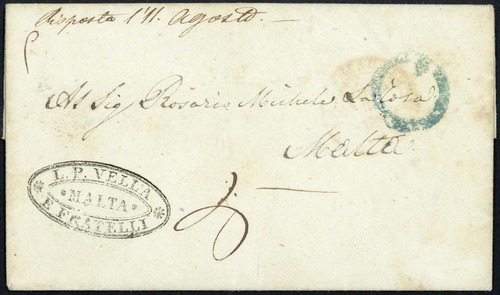 Risposta l'11. Agosto.
Al Sig Rosario Michele LaRosa
Malta
L. P. VELLA
* MALTA *
E FRATELLI